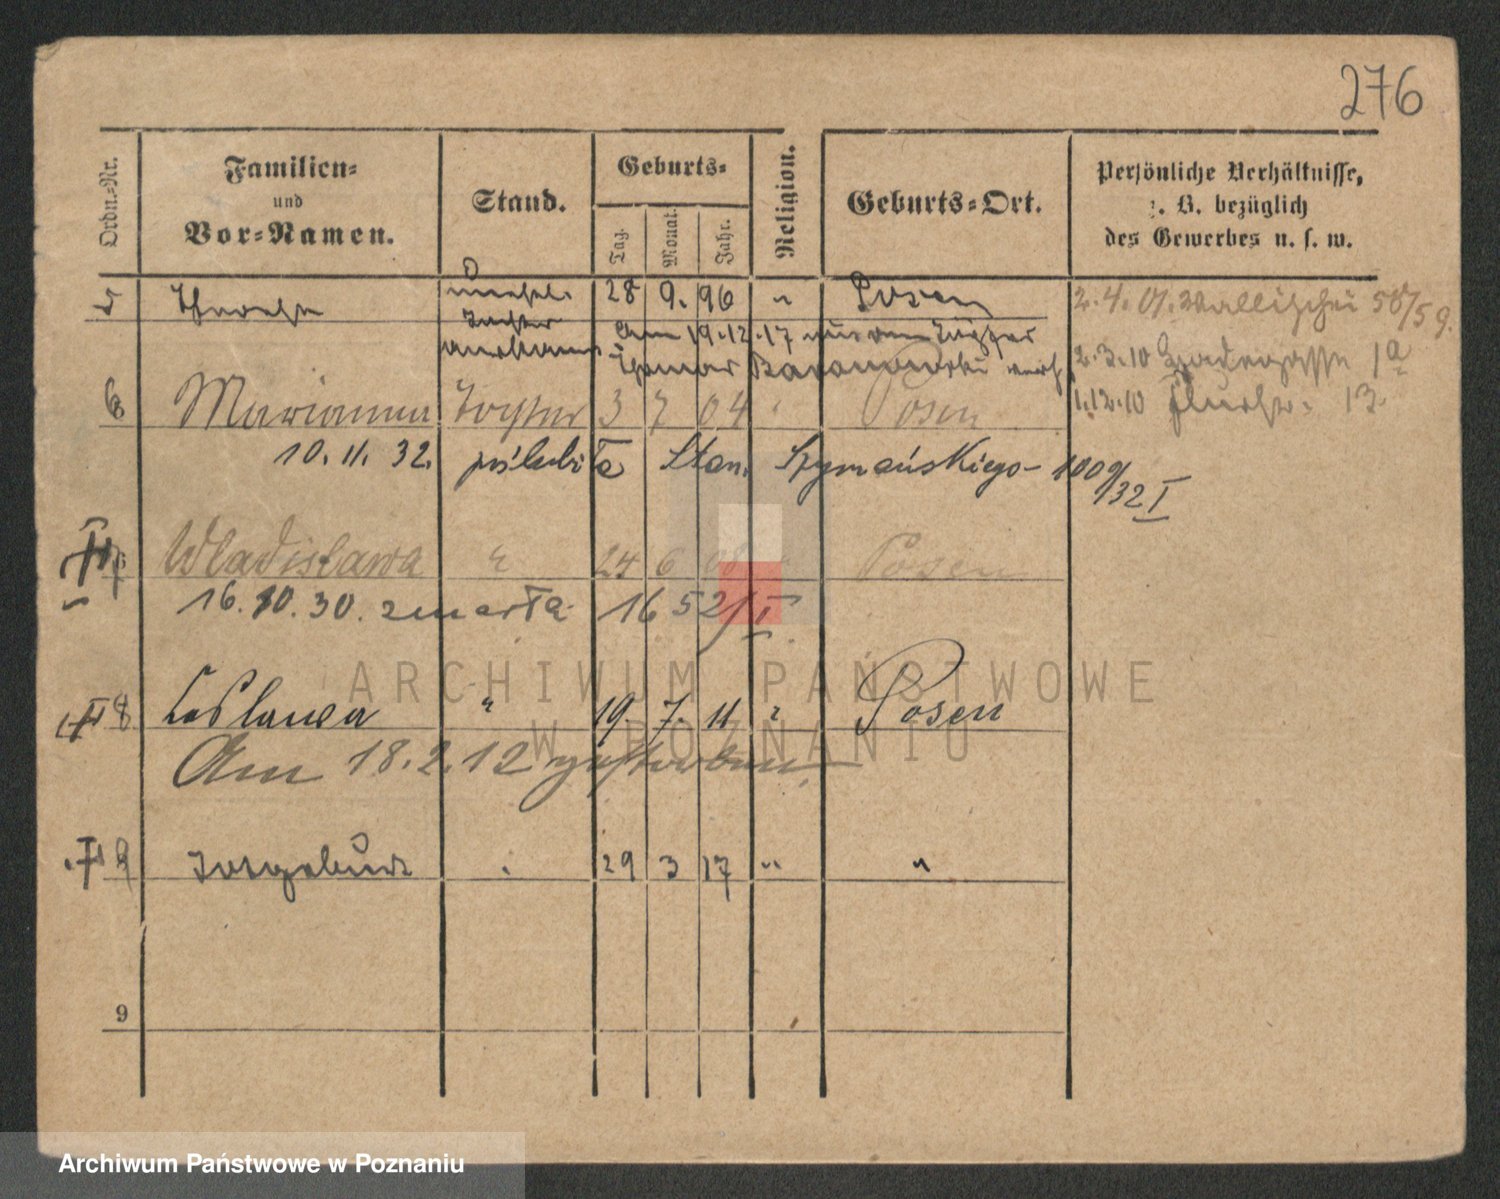 276
Ordn.-Nr.
Familien-
und
Vor-Namen.
Stand.
Geburts-
Tag.
Monat.
Jahr.
Religion.
Geburts-Ort.
Persönliche Verhältnisse,
z. B. bezüglich
des Gewerbes u. s. w.
5 28 9. 96 " Posen 2.4.01. Wallischei 58/59.
unehel.
Tochter
anerkannt
Am 19.12.17 mit dem
Baranowski verh. 2.3.10 1a
6 Marianna Tochter 3 7 04 " Posen 1.12.10 13.
10. 11. 32. poślubiła Stan. Szymańskiego - 1009/32 I
Wladislawa " 24 6 08 Posen
16. 10. 30. zmarła 1652/I
8 Ceslawa " 19. 7. 11 " Posen
Am 18.2.12 gestorben.
9 Totgeburt 29 3 17 " "
9
ARCHIWUM PAŃSTWOWE
W POZNANIU
Archiwum Państwowe w Poznaniu